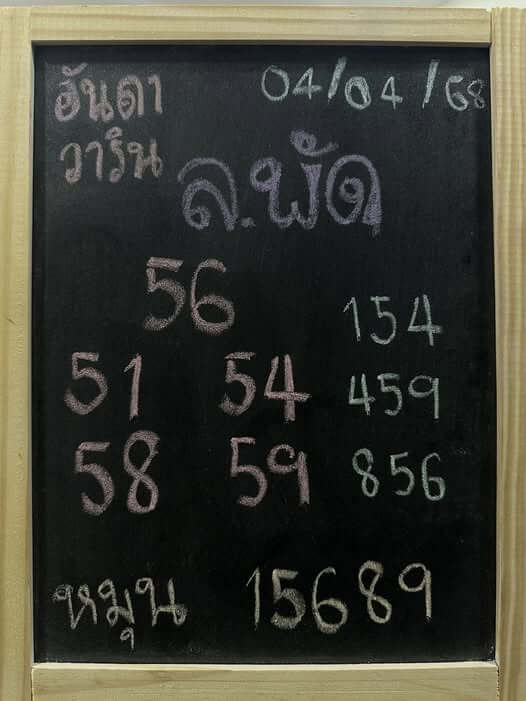 อันดา 04/04/68
วาริน
ล.พัด
56
154
51 54 459
58 59 856
หมุน 15689